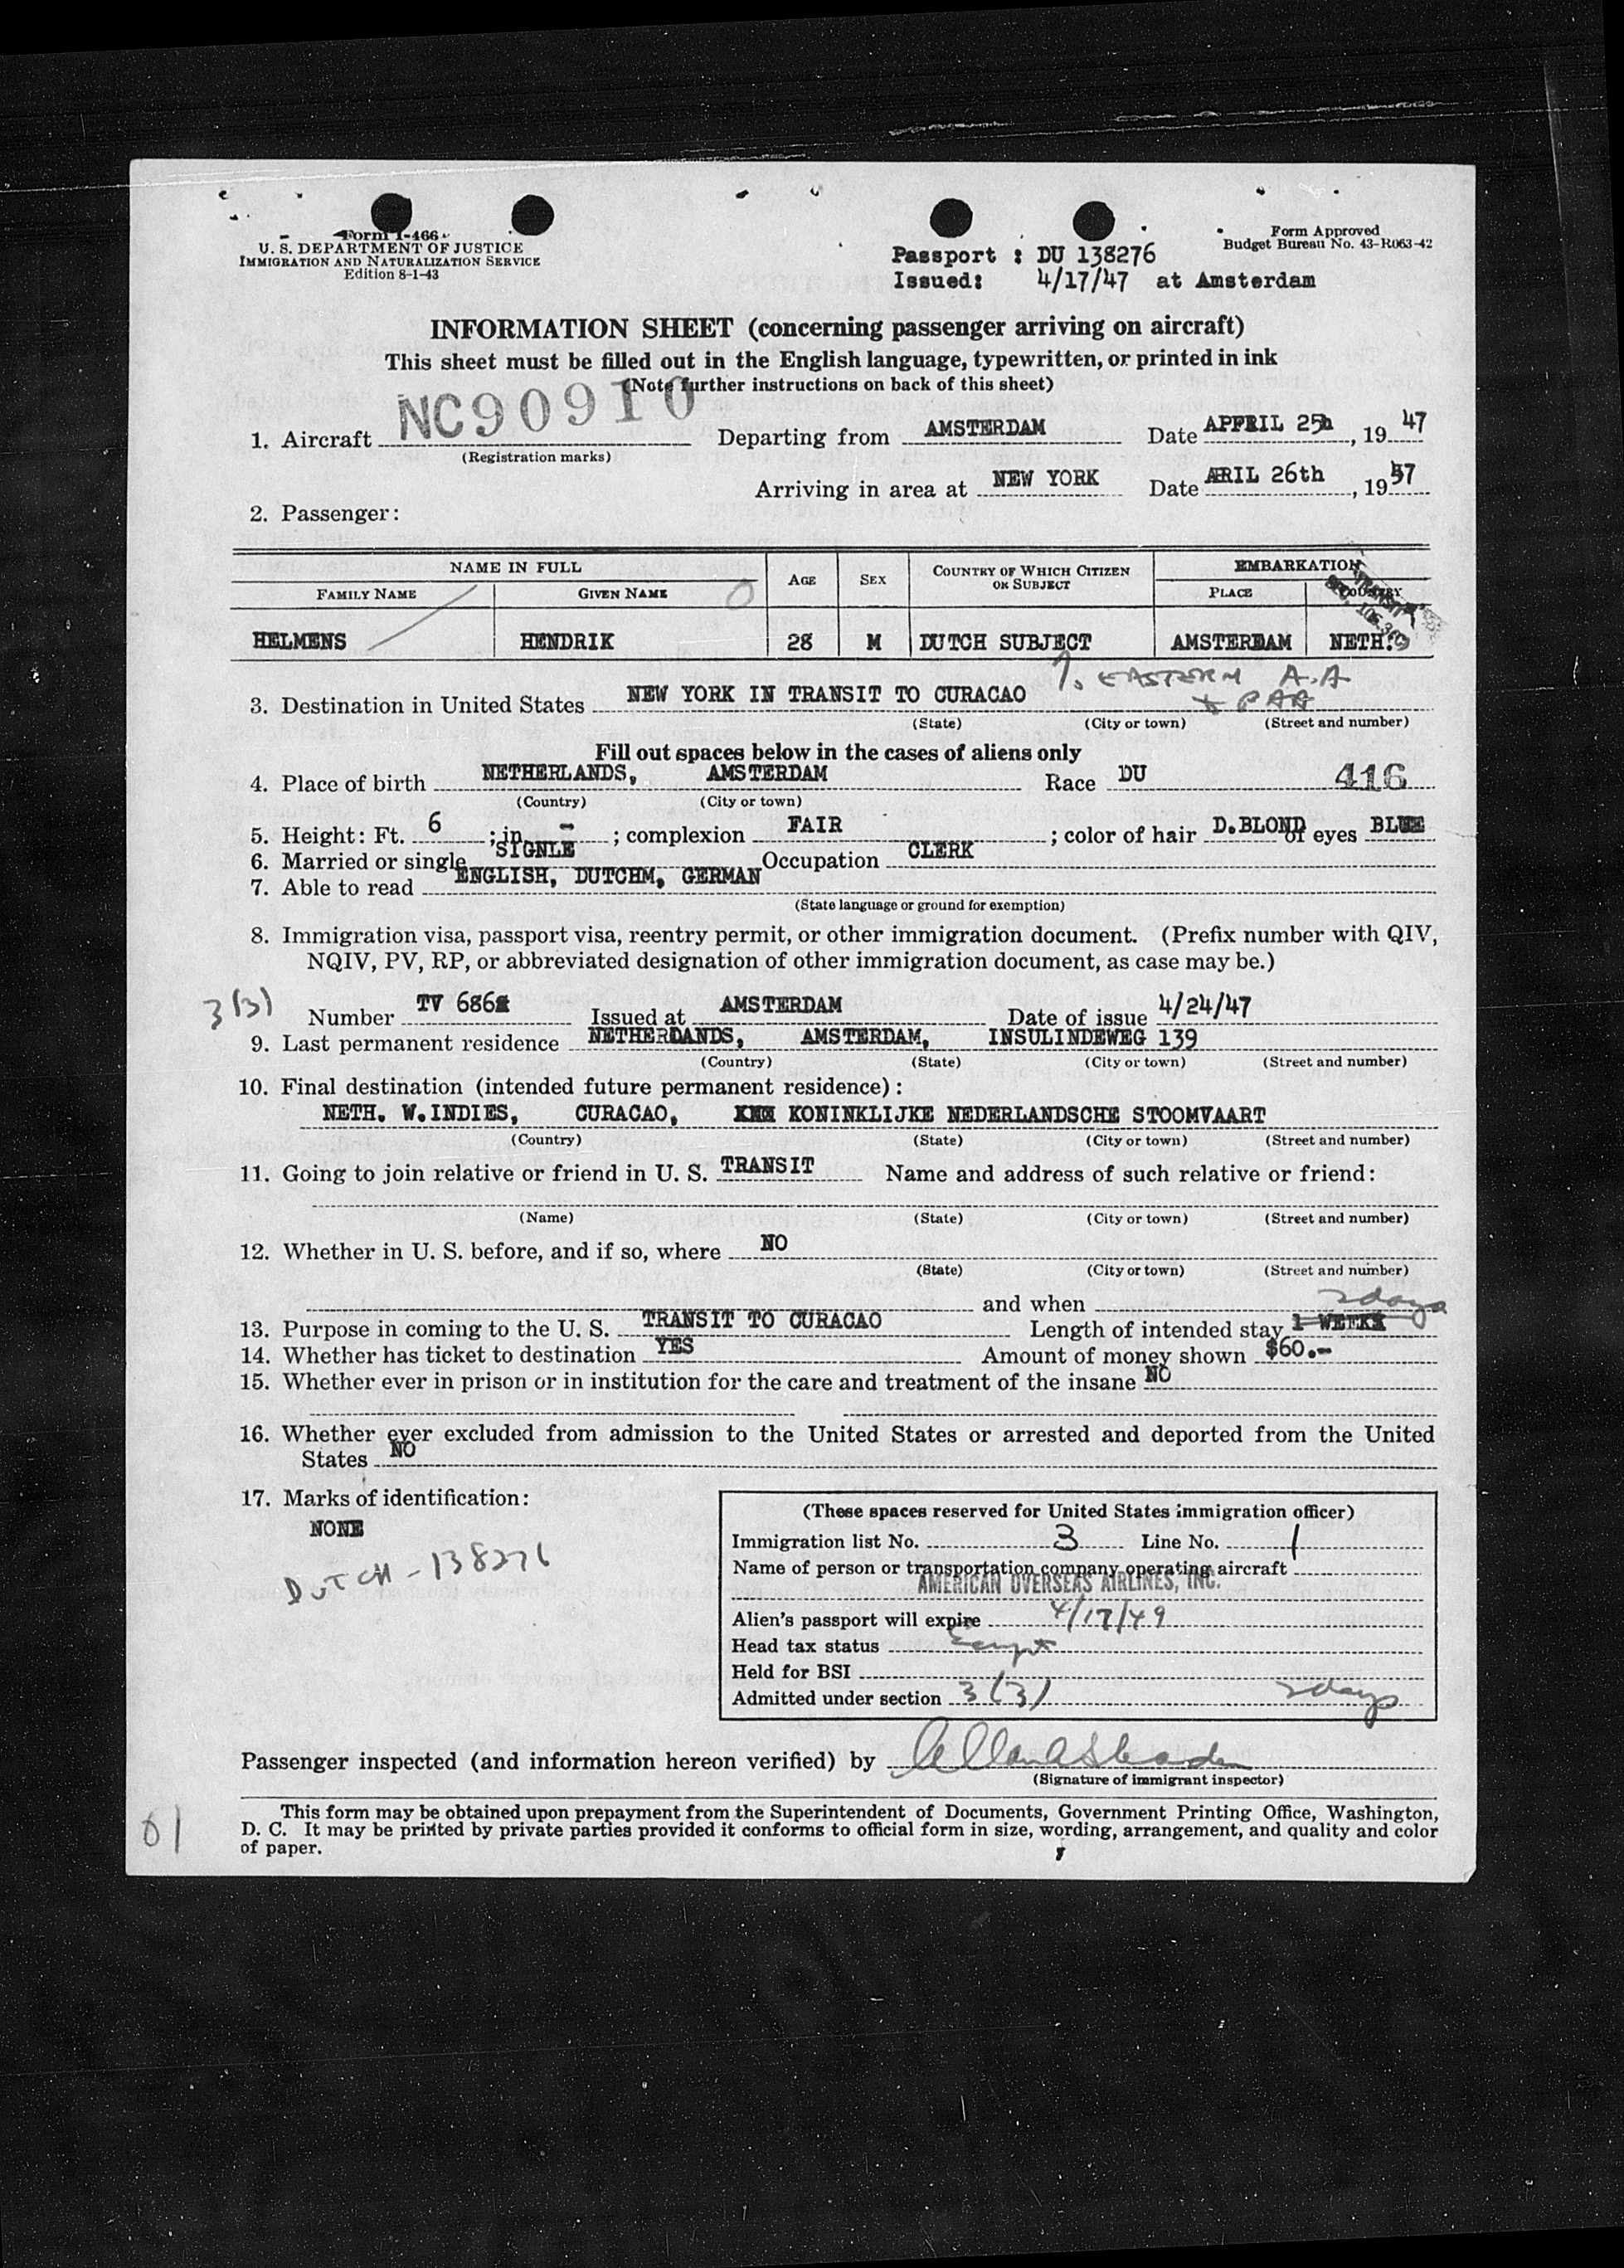 Form I-466
U. S. DEPARTMENT OF JUSTICE
IMMIGRATION AND NATURALIZATION SERVICE
Edition 8-1-43
Form Approved
Budget Bureau No. 43-R063-42
Passport : DU 138276
Issued: 4/17/47 at Amsterdam
INFORMATION SHEET (concerning passenger arriving on aircraft)
This sheet must be filled out in the English language, typewritten, or printed in ink
(Note further instructions on back of this sheet)
1. Aircraft NC90910 Departing from AMSTERDAM Date APPRIL 25h, 19 47
(Registration marks)
Arriving in area at NEW YORK Date ARIL 26th, 19 47
2. Passenger:
NAME IN FULL AGE SEX COUNTRY OF WHICH CITIZEN OR SUBJECT EMBARKATION
FAMILY NAME GIVEN NAME PLACE COUNTRY
TRANSIT
HELMENS HENDRIK 28 M DUTCH SUBJECT AMSTERDAM NETH.
EASTERN A.A
3. Destination in United States NEW YORK IN TRANSIT TO CURACAO PAA
(State) (City or town) (Street and number)
Fill out spaces below in the cases of aliens only
4. Place of birth NETHERLANDS, AMSTERDAM Race DU 416
(Country) (City or town)
5. Height: Ft. 6 ; in. - ; complexion FAIR ; color of hair D.BLOND of eyes BLUE
6. Married or single SIGNLE Occupation CLERK
7. Able to read ENGLISH, DUTCHM, GERMAN
(State language or ground for exemption)
8. Immigration visa, passport visa, reentry permit, or other immigration document. (Prefix number with QIV,
NQIV, PV, RP, or abbreviated designation of other immigration document, as case may be.)
3(3)
Number TV 686 Issued at AMSTERDAM Date of issue 4/24/47
9. Last permanent residence NETHERDANDS, AMSTERDAM, INSULINDEWEG 139
(Country) (State) (City or town) (Street and number)
10. Final destination (intended future permanent residence):
NETH. W.INDIES, CURACAO, KONINKLIJKE NEDERLANDSCHE STOOMVAART
(Country) (State) (City or town) (Street and number)
11. Going to join relative or friend in U. S. TRANSIT Name and address of such relative or friend:
(Name) (State) (City or town) (Street and number)
12. Whether in U. S. before, and if so, where NO
(State) (City or town) (Street and number)
and when 2 days
13. Purpose in coming to the U. S. TRANSIT TO CURACAO Length of intended stay 1 WEEKX
14. Whether has ticket to destination YES Amount of money shown $60.-
15. Whether ever in prison or in institution for the care and treatment of the insane NO
16. Whether ever excluded from admission to the United States or arrested and deported from the United
States NO
17. Marks of identification:
NONE
DUTCH - 138276
(These spaces reserved for United States immigration officer)
Immigration list No. 3 Line No. 1
Name of person or transportation company operating aircraft
AMERICAN OVERSEAS AIRLINES, INC.
Alien's passport will expire 4/17/49
Head tax status
Held for BSI
Admitted under section 3(3) 2 days
Passenger inspected (and information hereon verified) by
(Signature of immigrant inspector)
This form may be obtained upon prepayment from the Superintendent of Documents, Government Printing Office, Washington,
D. C. It may be printed by private parties provided it conforms to official form in size, wording, arrangement, and quality and color
of paper.
01